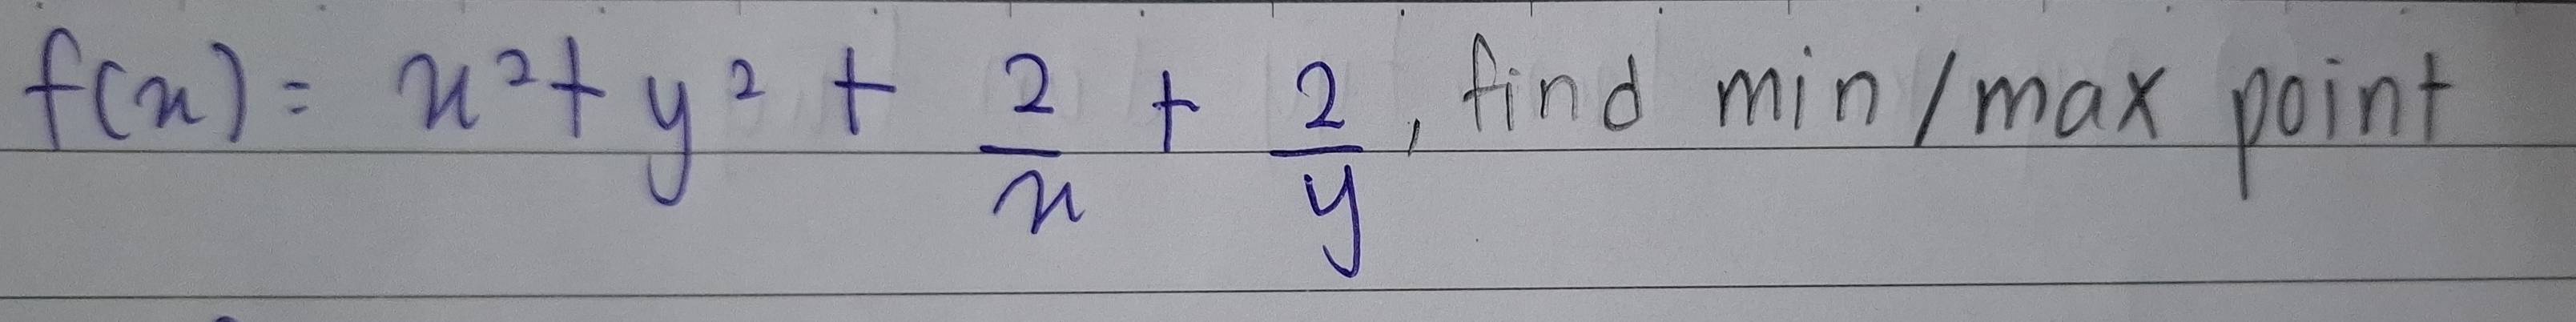 f(x) = x² + y² + 2/x + 2/y, find min/max point